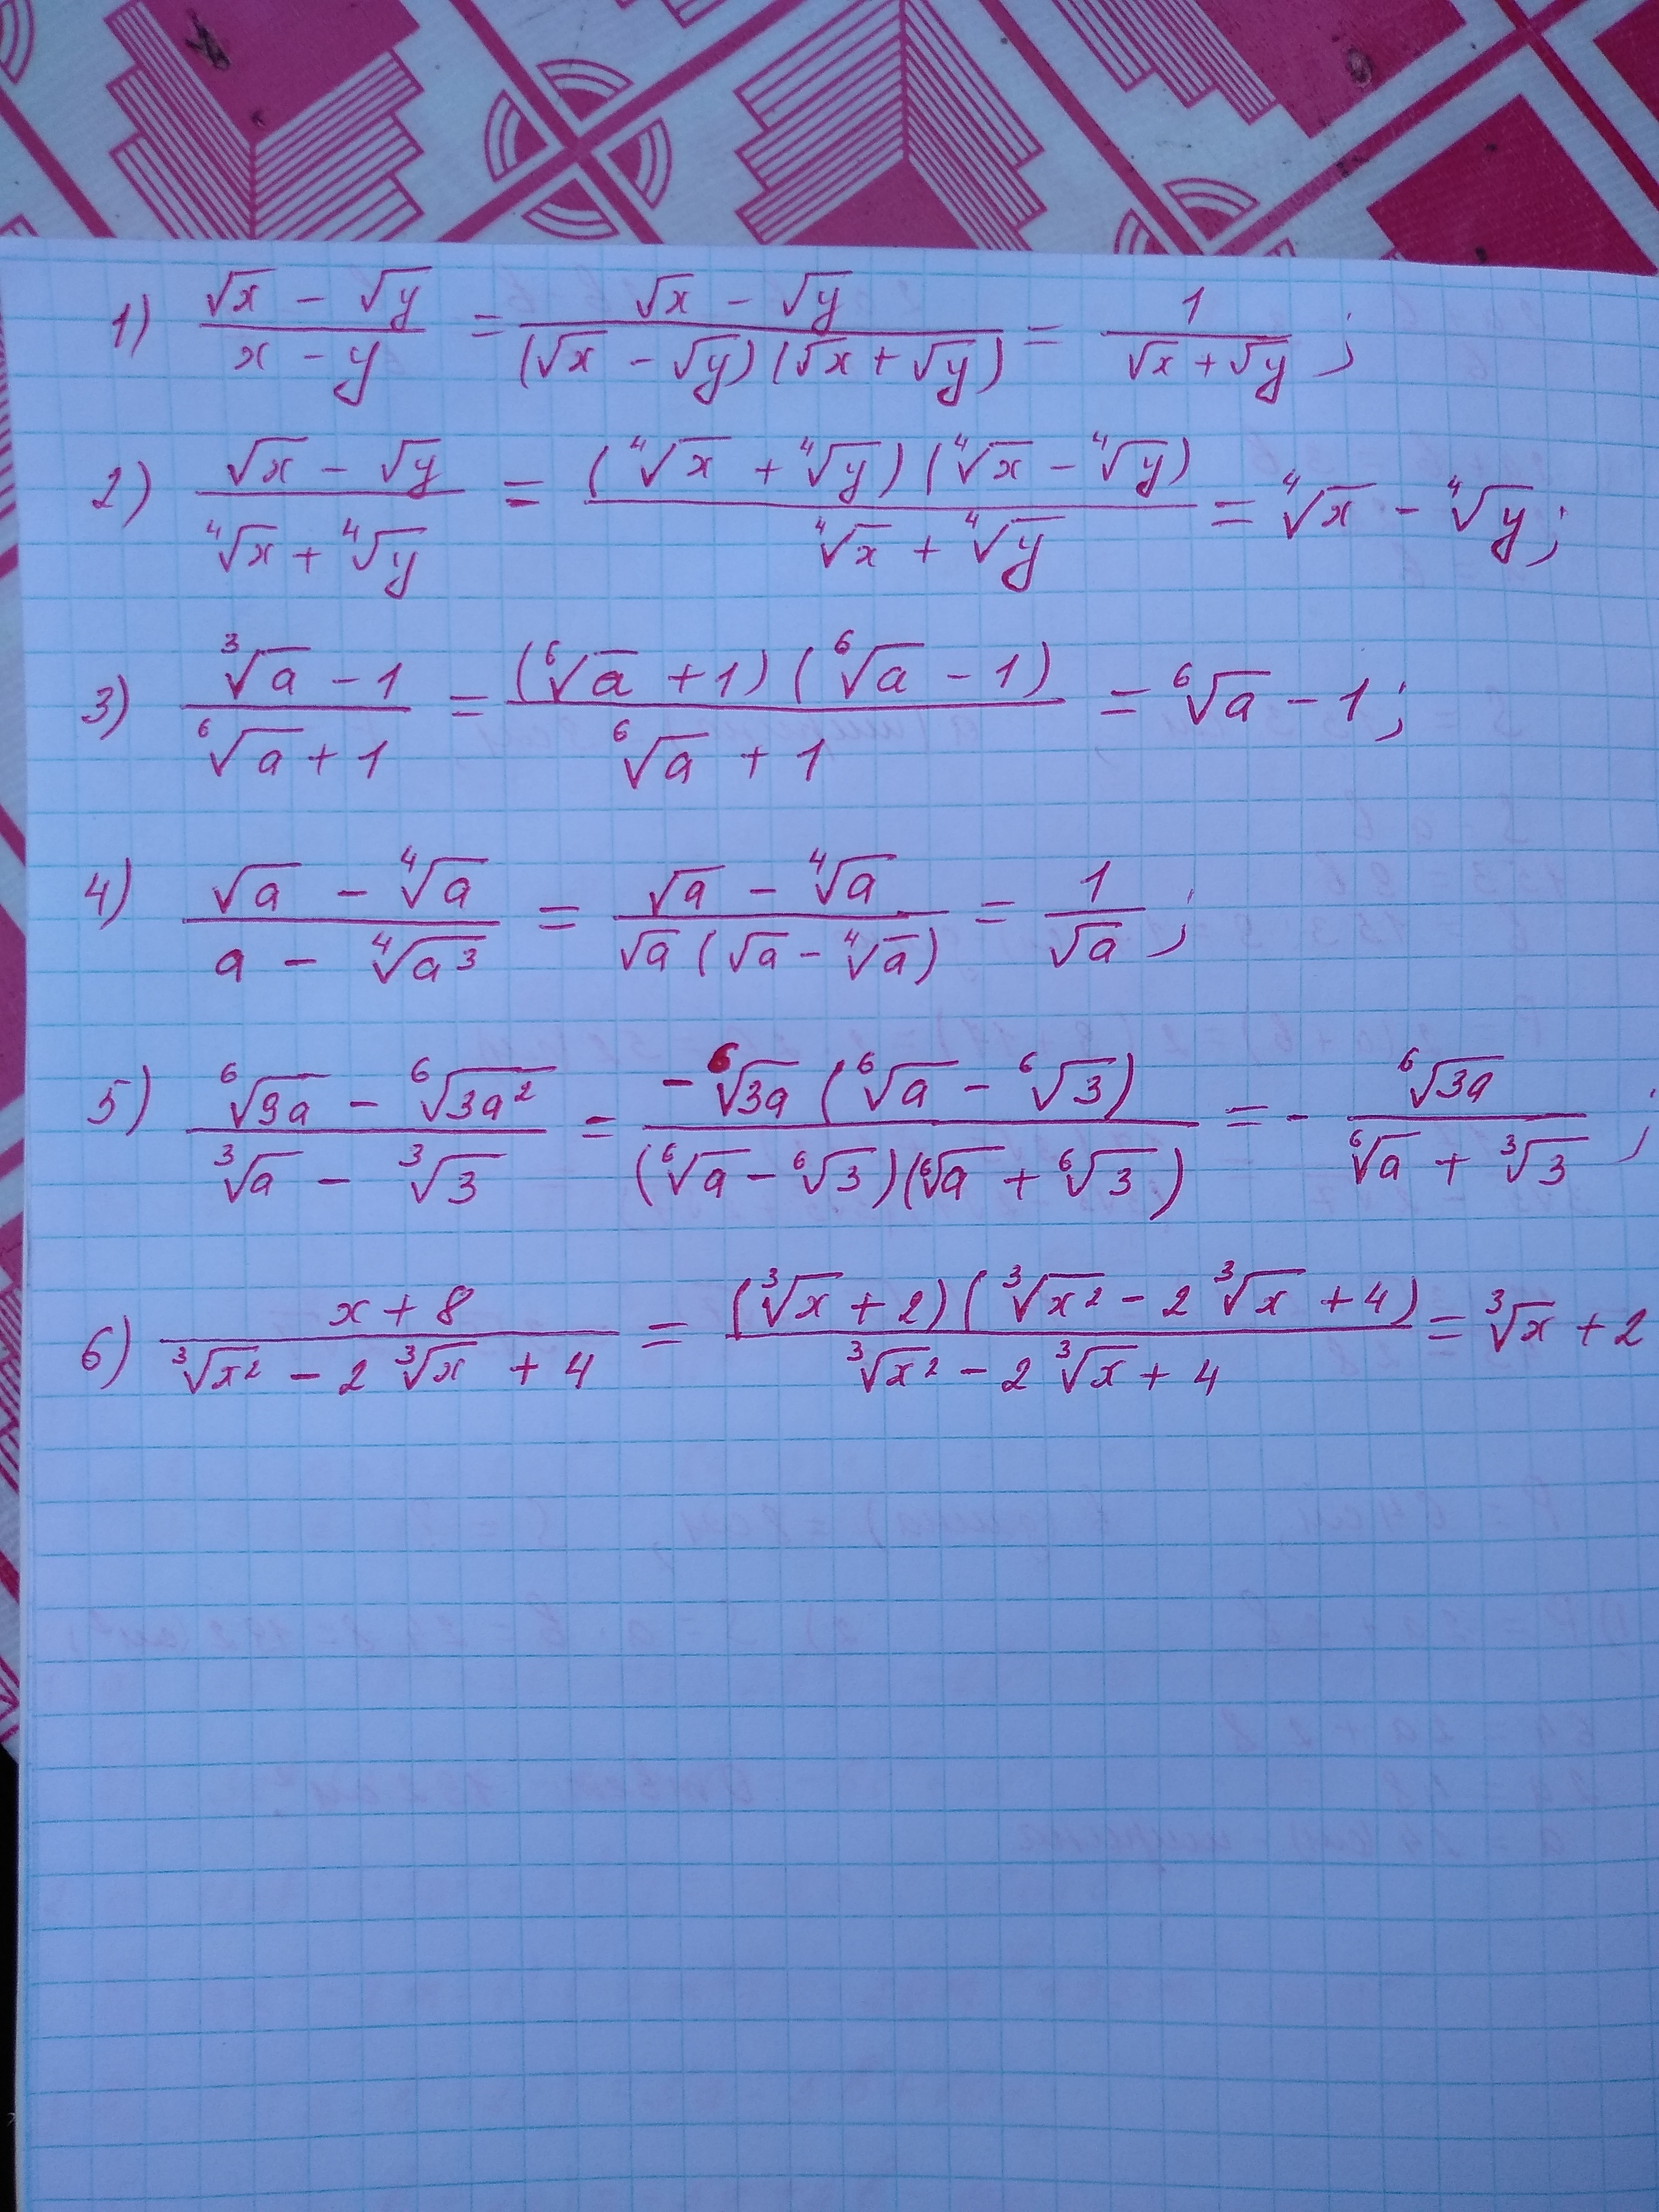 1) (√x - √y)/(x - y) = (√x - √y)/((√x - √y)(√x + √y)) = 1/(√x + √y);
2) (√x - √y)/(⁴√x + ⁴√y) = ((⁴√x + ⁴√y)(⁴√x - ⁴√y))/(⁴√x + ⁴√y) = ⁴√x - ⁴√y;
3) (³√a - 1)/(⁶√a + 1) = ((⁶√a + 1)(⁶√a - 1))/(⁶√a + 1) = ⁶√a - 1;
4) (√a - ⁴√a)/(a - ⁴√a³) = (√a - ⁴√a)/(√a(√a - ⁴√a)) = 1/√a;
5) (⁶√9a - ⁶√3a²)/(³√a - ³√3) = (-⁶√3a(⁶√a - ⁶√3))/((⁶√a - ⁶√3)(⁶√a + ⁶√3)) = - ⁶√3a/(⁶√a + ³√3);
6) (x + 8)/(³√x² - 2 ³√x + 4) = ((³√x + 2)(³√x² - 2 ³√x + 4))/(³√x² - 2 ³√x + 4) = ³√x + 2